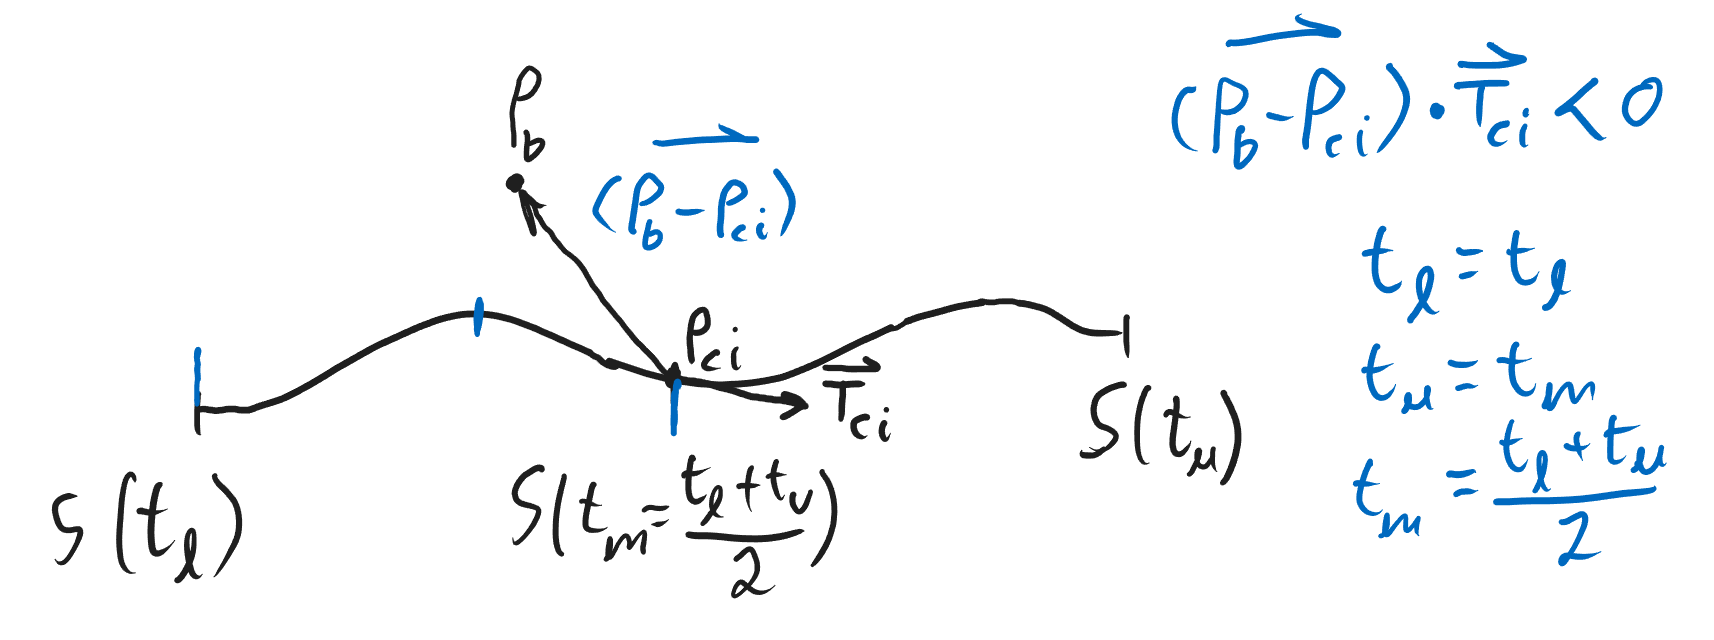 P_b
(P_b - P_ci)
P_ci
T_ci
S(t_l)
S(t_m = (t_l + t_u)/2)
S(t_u)
(P_b - P_ci) · T_ci < 0
t_l = t_l
t_u = t_m
t_m = (t_l + t_u)/2